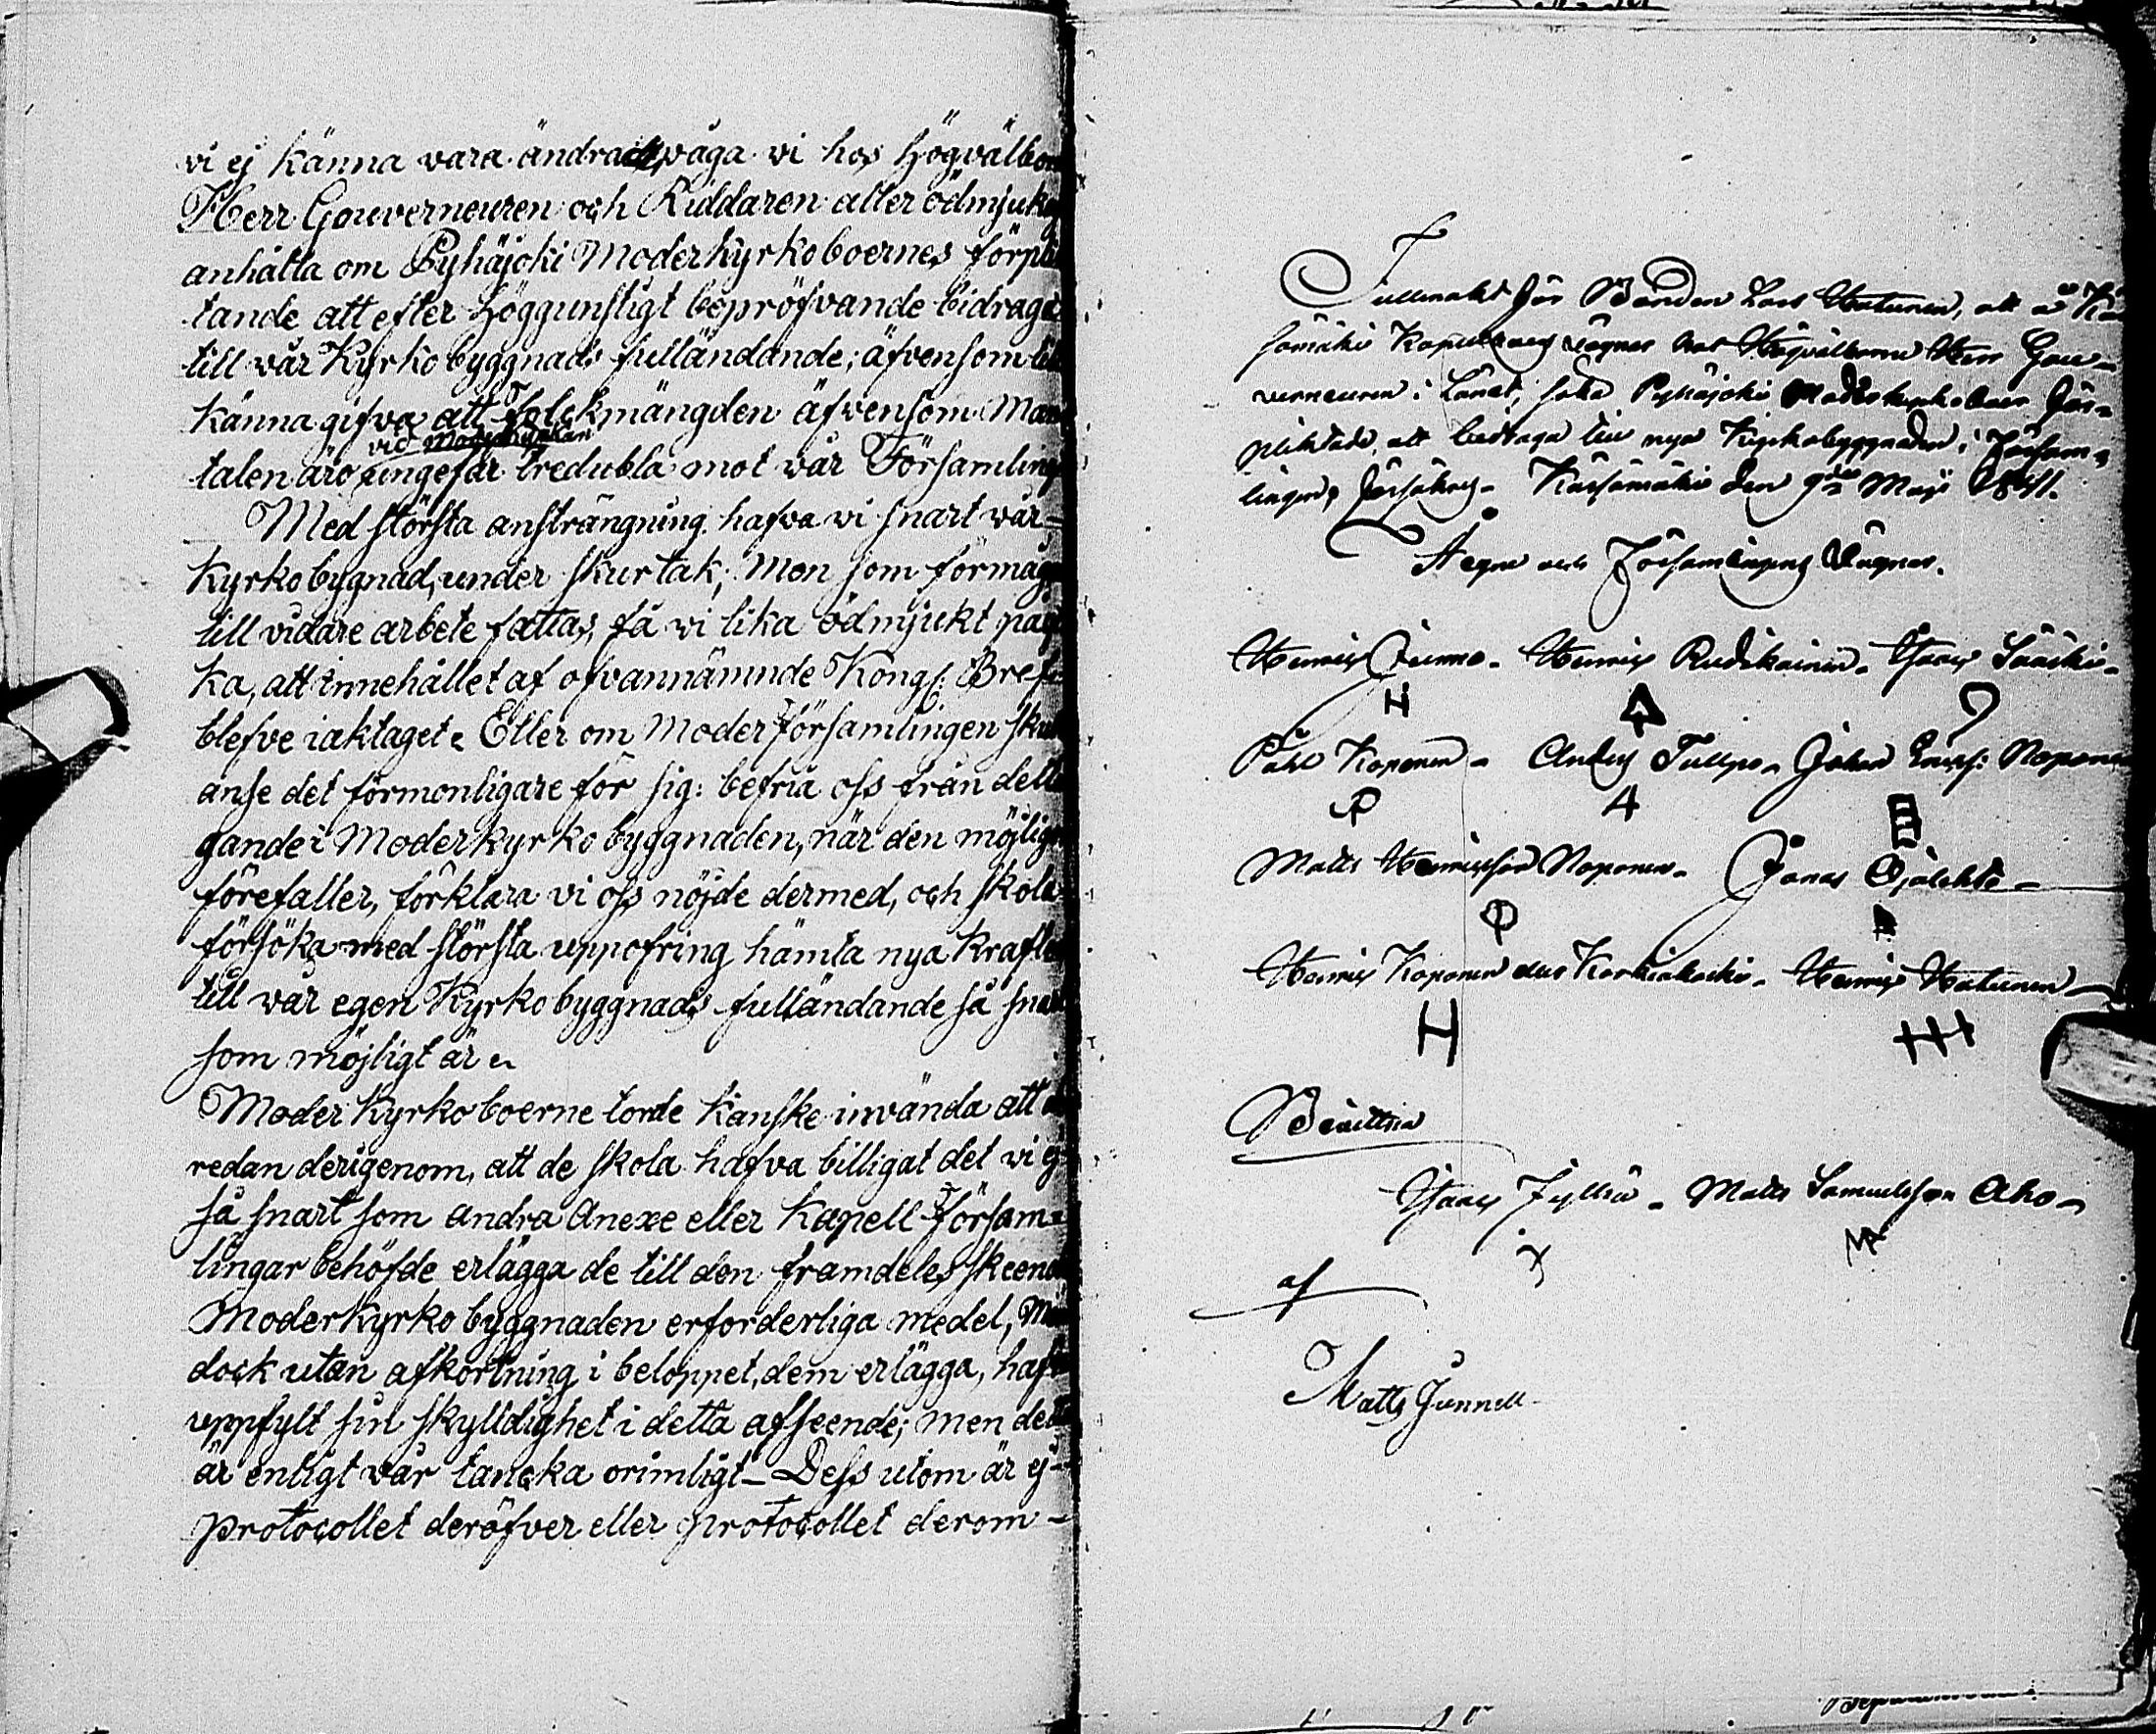 vi ej känna vara ändradt, våga vi hos Högvälbor
Herr Gouverneuren och Riddaren aller ödmjukas
anhålla om Pyhäjoki Moderkyrkoboernes förplik
tande att efter höggunstigt bepröfvande bidraga
till vår Kyrkobyggnads fulländande; äfvensom till
känna gifva att folckmängden äfvensom Man
vid Moderkyrkan
talen äro ungefär tredubla mot vår Församling
Med största ansträngning hafva vi snart vår
Kyrkobygnad, under skurtak; Men som förmåga
till vidare arbete fattas, få vi lika ödmjukt påyr
ka, att innehållet af ofvannämnde Kongl: Bref
blefve iaktaget. Eller om Moder Församlingen skul
anse det förmonligare för sig: befria oss från delta
gande i Moderkyrko byggnaden, när den möjligen
förefaller, förklara vi oss nöjde dermed, och skola
försöka med största uppofring hämta nya krafter
till vår egen Kyrko byggnads fulländande så snart
som möjligt är.
Moder Kyrkoboerne torde kanske invända att
redan derigenom, att de skola hafva billigat det vi ej
så snart som andra Anexe eller Kapell Försam=
lingar behöfde erlägga de till den framdeles skeende
Moderkyrko byggnaden erforderliga medel, Men
dock utan afkortning i beloppet, dem erlägga, hafva
uppfylt sin skylldighet i detta afseende; men detta
är enligt vår tancka orimligt_ Dess utom är ej
protocollet deröfver eller protocollet derom
Fullmakt för Bonden Lars Hatunen, att å Kär
sämäki Kapellboers vägnar hos Högvälborne Herr Gou-
verneuren i Länet, söka Pyhäjoki Moderkyrkoboer för=
pliktade, att bidraga till nya Kyrkobyggnaden i Försam=
lingen, försäkras. Kärsämäki den 9de Maji 1841.
Ägne och Församlingens Vägnar.
Henric Junno. Henric Rudikainen. Isaac Sääski
H
Påhl Koponen. Anders Tulppo. Johan Noponen
P 4
Matts Henricsson Noponen. Jonas Ojalehto
Henric Koponen Karkiakoski. Henric Hatunen
H
Bevittna
Isaac Jylhä. Matts Samuelsson Aho
af
Matts Junnell